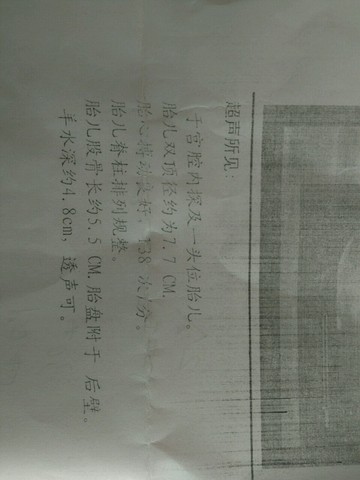 超声所见:
于宫腔内探及一头位胎儿。
胎儿双顶径约为7.7 CM.
胎心搏动良好,138 次/分。
胎儿脊柱排列规整。
胎儿股骨长约5.5 CM.胎盘附于 后壁。
羊水深约4.8cm, 透声可。